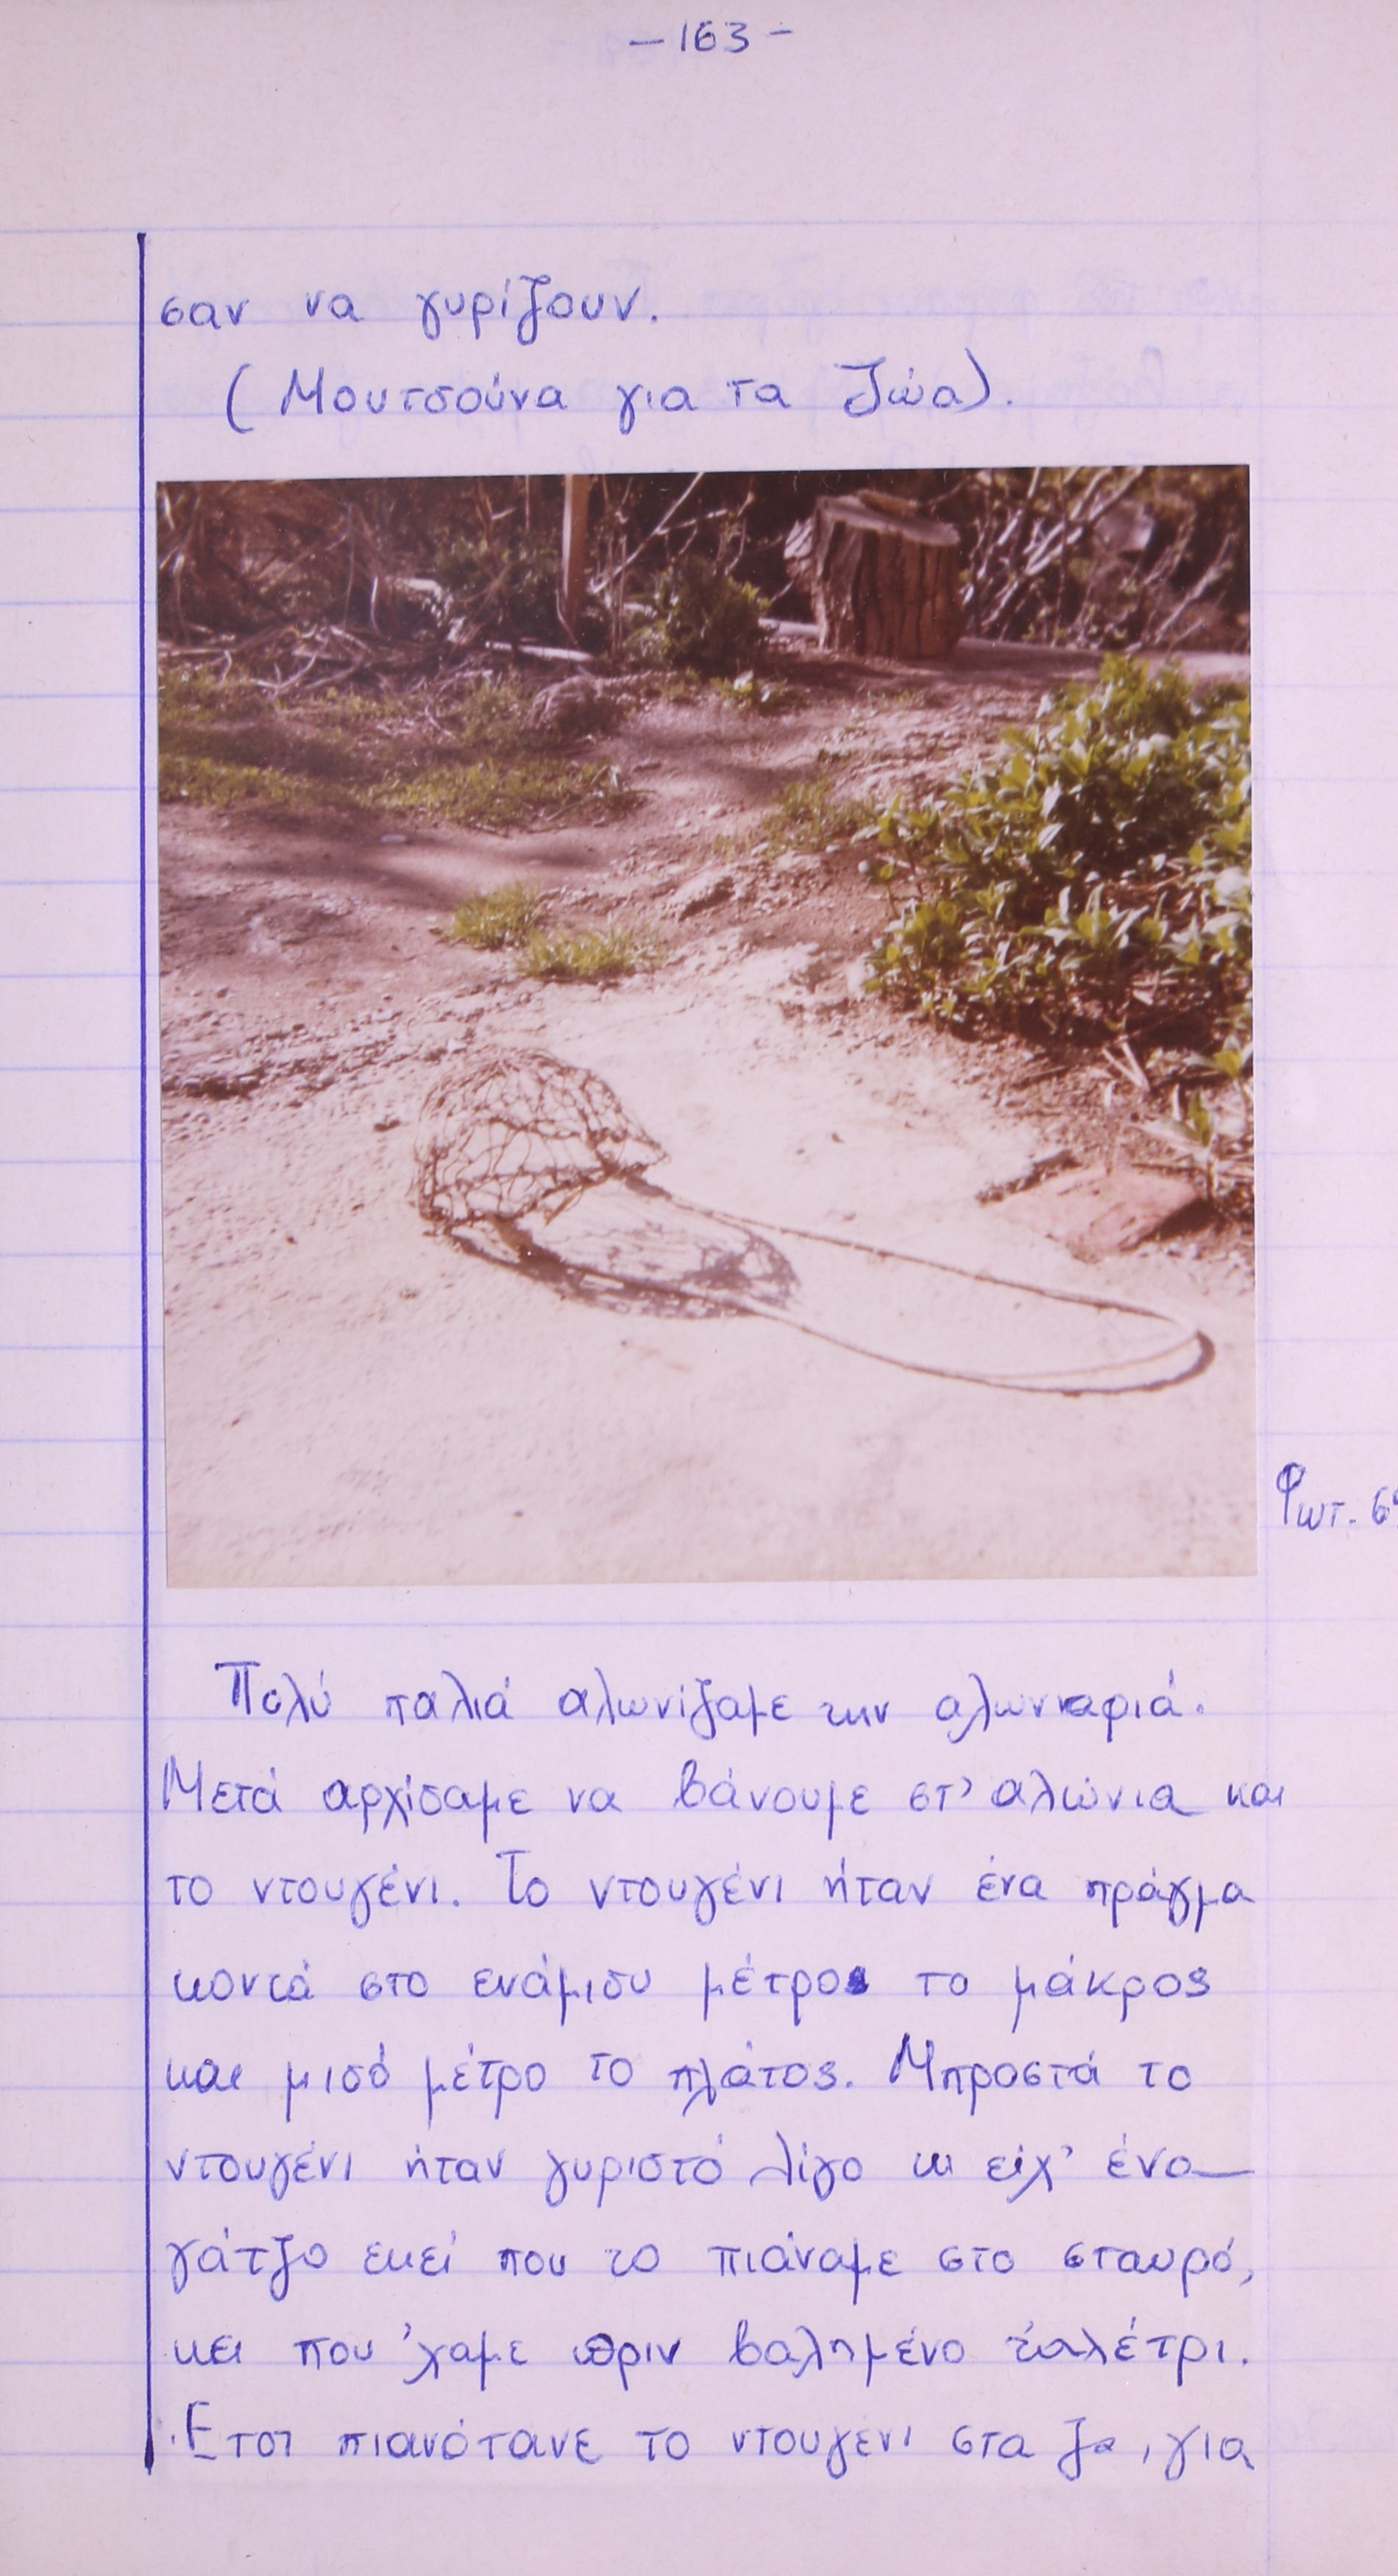 - 163 -
σαν να γυρίζουν.
(Μουτσούνα για τα ζώα).
Φωτ.
Πολύ παλιά αλωνίζαμε την αλωνιαριά.
Μετά αρχίσαμε να βάνουμε στ' αλώνια και
το ντουγένι. Το ντουγένι ήταν ένα πράγμα
κοντά στο ενάμισυ μέτρο το μάκρος
και μισό μέτρο το πλάτος. Μπροστά το
ντουγένι ήταν γυριστό λίγο κι είχ' ένα
γάτζο εκεί που το πιάναμε στο σταυρό,
κει που 'χαμε πριν βαλημένο τ'αλέτρι.
Ετσι πιανότανε το ντουγένι στα ζα, για